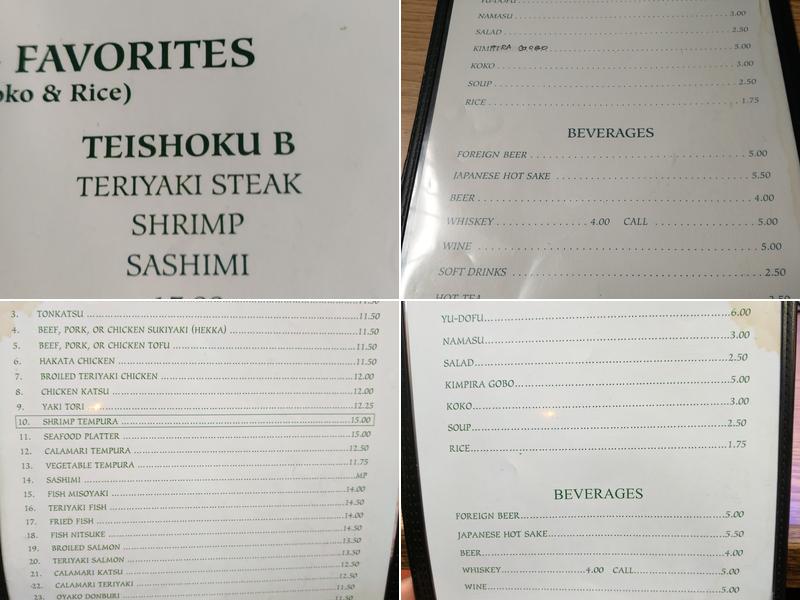 FAVORITES
oko & Rice)
TEISHOKU B
TERIYAKI STEAK
SHRIMP
SASHIMI
NAMASU 3.00
SALAD 2.50
KIMPIRA GOBO 5.00
KOKO 3.00
SOUP 2.50
RICE 1.75
BEVERAGES
FOREIGN BEER 5.00
JAPANESE HOT SAKE 5.50
BEER 4.00
WHISKEY 4.00 CALL 5.00
WINE 5.00
SOFT DRINKS 2.50
HOT TEA
3. TONKATSU 11.50
4. BEEF, PORK, OR CHICKEN SUKIYAKI (HEKKA) 11.50
5. BEEF, PORK, OR CHICKEN TOFU 11.50
6. HAKATA CHICKEN 11.50
7. BROILED TERIYAKI CHICKEN 12.00
8. CHICKEN KATSU 12.00
9. YAKI TORI 12.25
10. SHRIMP TEMPURA 15.00
11. SEAFOOD PLATTER 15.00
12. CALAMARI TEMPURA 12.50
13. VEGETABLE TEMPURA 11.75
14. SASHIMI MP
15. FISH MISOYAKI 14.00
16. TERIYAKI FISH 14.50
17. FRIED FISH 14.00
18. FISH NITSUKE 14.50
19. BROILED SALMON 13.50
20. TERIYAKI SALMON 13.50
21. CALAMARI KATSU 12.50
22. CALAMARI TERIYAKI 12.50
23. OYAKO DONBURI 11.50
YU-DOFU 6.00
NAMASU 3.00
SALAD 2.50
KIMPIRA GOBO 5.00
KOKO 3.00
SOUP 2.50
RICE 1.75
BEVERAGES
FOREIGN BEER 5.00
JAPANESE HOT SAKE 5.50
BEER 4.00
WHISKEY 4.00 CALL 5.00
WINE 5.00